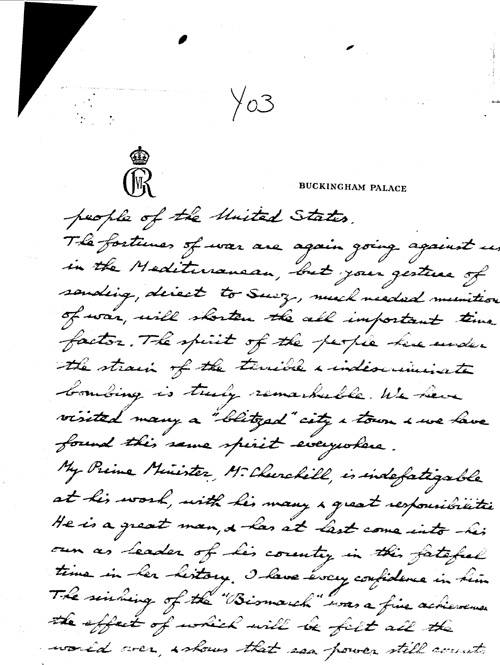 Y03
GRVI
BUCKINGHAM PALACE
people of the United States.
The fortunes of war are again going against us
in the Mediterranean, but your gesture of
sending, direct to Suez, much needed munition
of war, will shorten the all important time
factor. The spirit of the people here under
the strain of the terrible & indiscriminate
bombing is truly remarkable. We have
visited many a "blitzed" city & town & we have
found this same spirit everywhere.
My Prime Minister, Mr. Churchill, is indefatigable
at his work, with his many & great responsibilitie
He is a great man, & has at last come into his
own as leader of his country in this fateful
time in her history. I have every confidence in him
The sinking of the "Bismarck" was a fine achieveme
the effect of which will be felt all the
world over, & shows that sea power still counts